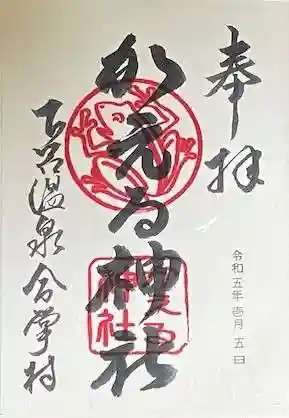 奉拝
かえる神社
令和五年壱月五日
下呂温泉合掌村